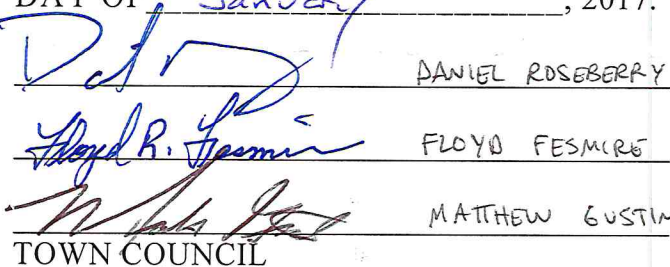 DAY OF January, 2017.
DANIEL ROSEBERRY
Floyd R. Fesmire FLOYD FESMIRE
MATTHEW GUSTIN
TOWN COUNCIL